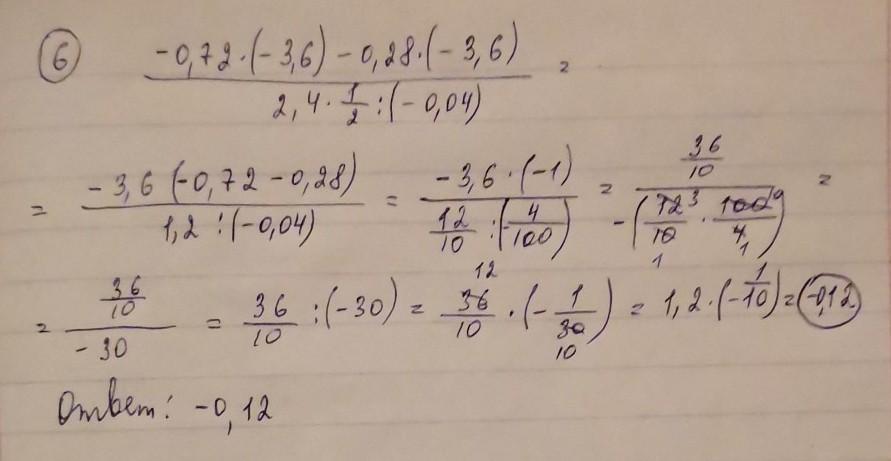 6 (-0,72·(-3,6)-0,28·(-3,6))/(2,4·1/2:(-0,04)) =
= (-3,6(-0,72-0,28))/(1,2:(-0,04)) = (-3,6·(-1))/(12/10:(-4/100)) = (36/10)/(-(12/10·100/4)) =
= (36/10)/(-30) = 36/10:(-30) = 36/10·(-1/30) = 1,2·(-1/10) = -0,12
Ответ: -0,12